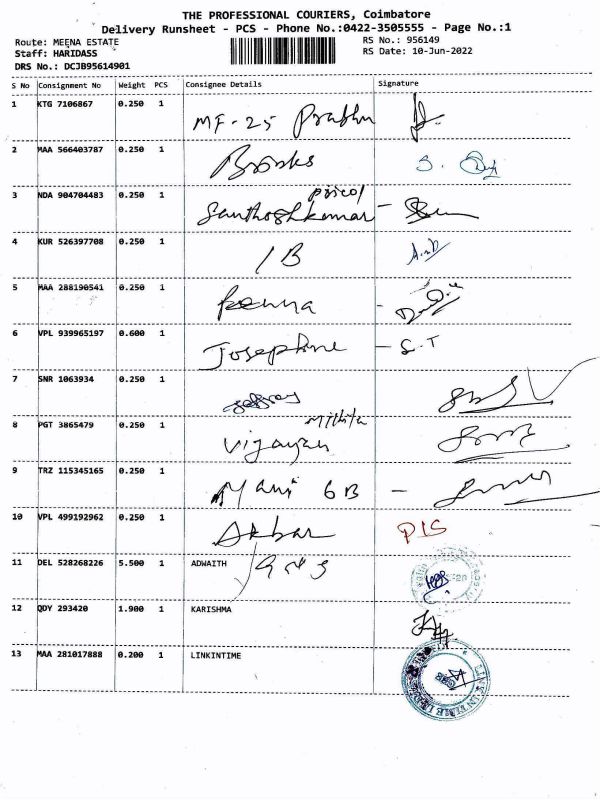 THE PROFESSIONAL COURIERS, Coimbatore
Delivery Runsheet - PCS - Phone No.:0422-3505555 - Page No.:1
Route: MEENA ESTATE
RS No.: 956149
Staff: HARIDASS
RS Date: 10-Jun-2022
DRS No.: DCJB95614901
S No Consignment No Weight PCS Consignee Details Signature
1 KTG 7106867 0.250 1 MF-25 Prabhu
2 MAA 566403787 0.250 1 Brooks
3 NDA 904704483 0.250 1 Santhoshkumar
4 KUR 526397708 0.250 1 1B
5 MAA 288190541 0.250 1
6 VPL 939965197 0.600 1 Josephine - S.T
7 SNR 1063934 0.250 1
8 PGT 3865479 0.250 1 Vijayan
9 TRZ 115345165 0.250 1 Mani 6B -
10 VPL 499192962 0.250 1 Akbar
11 DEL 528268226 5.500 1 ADWAITH
12 QDY 293420 1.900 1 KARISHMA
13 MAA 281017888 0.200 1 LINKINTIME